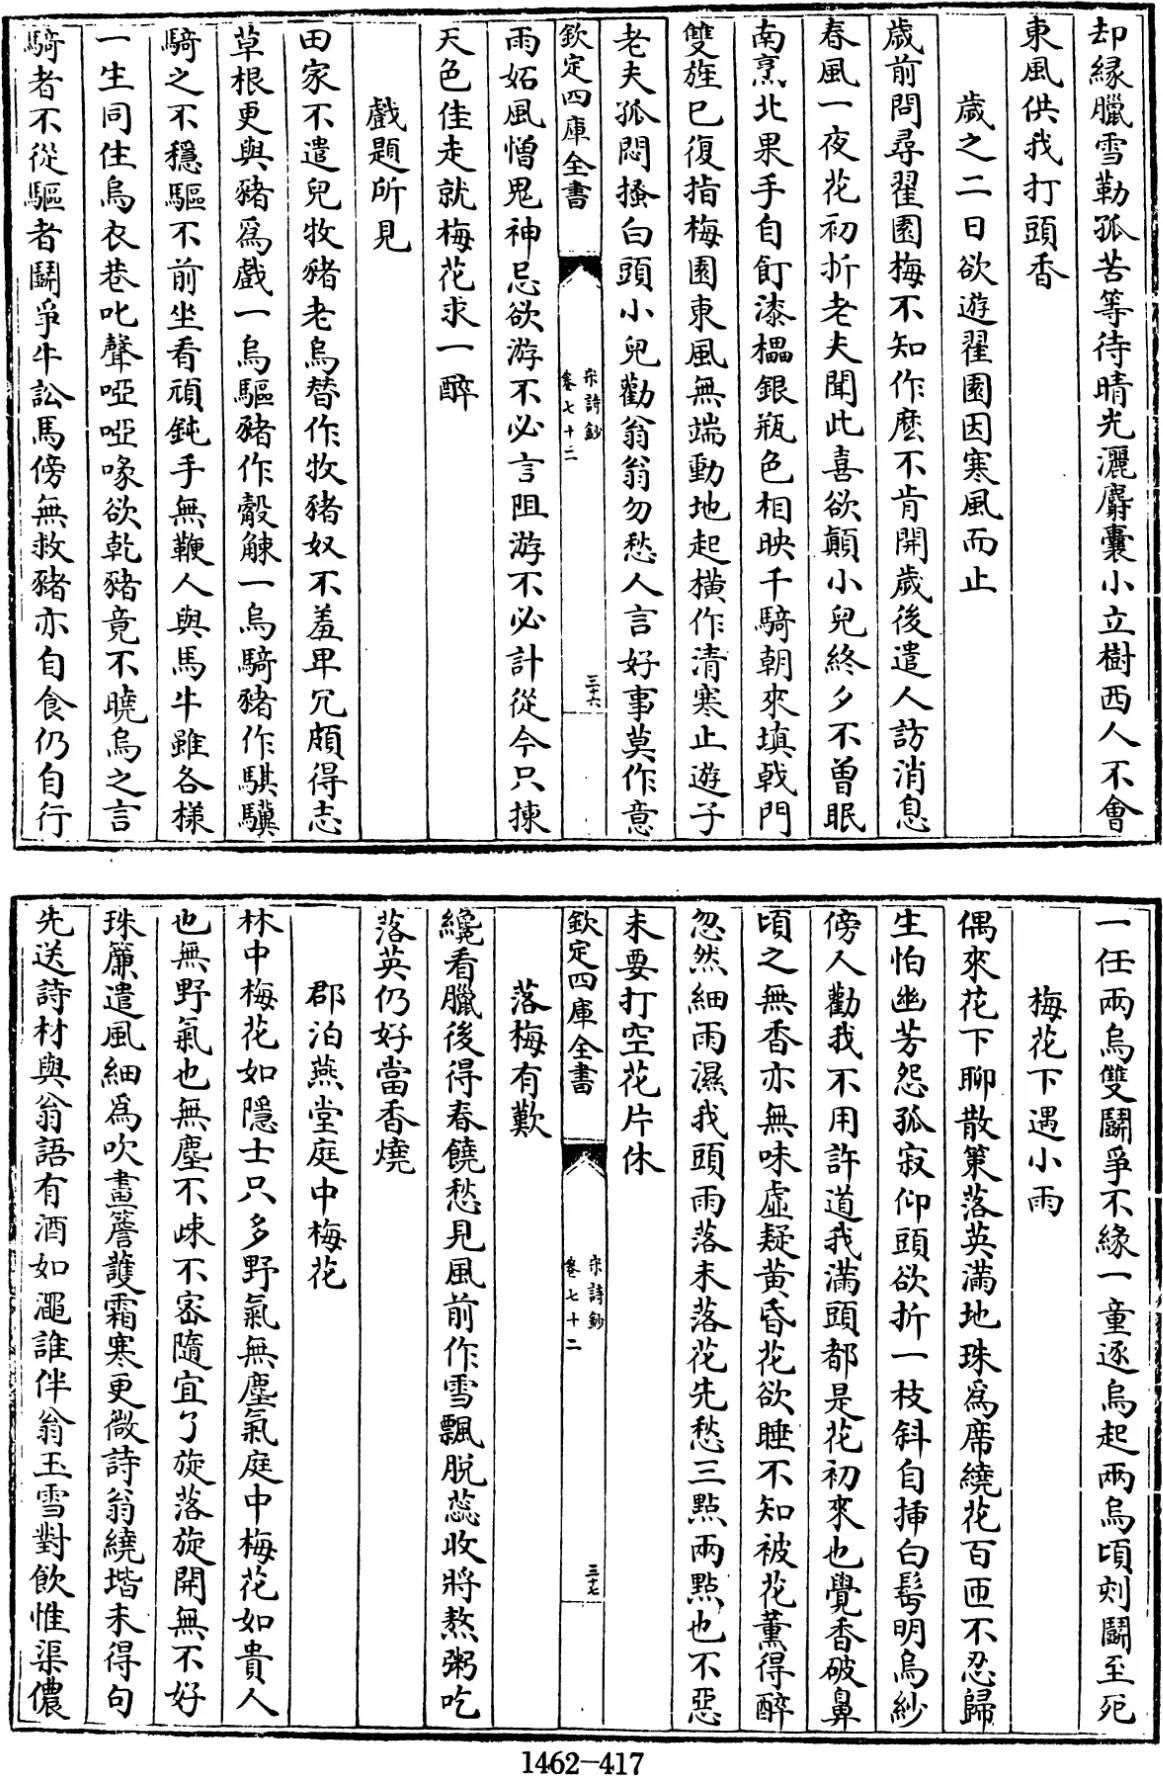 却緣臘雪勒孤苦等待晴光灑麝囊小立樹西人不會
東風供我打頭香
歲之二日欲遊翟園因寒風而止
歲前問尋翟園梅不知作麽不肯開歲後遣人訪消息
春風一夜花初折老夫聞此喜欲顛小兒終夕不曾眠
南烹北果手自飣漆櫑銀瓶色相映千騎朝來填戟門
雙旌已復指梅園東風無端動地起橫作清寒止遊子
老夫孤悶搔白頭小兒勸翁翁勿愁人言好事莫作意
欽定四庫全書
宋詩鈔
卷七十二
三六
雨妬風憎鬼神忌欲游不必言阻游不必計從今只揀
天色佳走就梅花求一醉
戲題所見
田家不遣兒牧豬老烏替作牧豬奴不羞卑冗頗得志
草根更與豬爲戲一烏驅豬作觳觫一烏騎豬作騏驥
騎之不穩驅不前坐看頑鈍手無鞭人與馬牛雖各様
一生同住烏衣巷叱聲啞啞喙欲乾豬竟不曉烏之言
騎者不從驅者鬭爭牛訟馬傍無救豬亦自食仍自行
一任兩烏雙鬭爭不緣一童逐烏起兩烏頃刻鬭至死
梅花下遇小雨
偶來花下聊散策落英滿地珠爲席繞花百匝不忍歸
生怕幽芳怨孤寂仰頭欲折一枝斜自揷白髩明烏紗
傍人勸我不用許道我滿頭都是花初來也覺香破鼻
頃之無香亦無味虛疑黄昏花欲睡不知被花薰得醉
忽然細雨濕我頭雨落未落花先愁三點兩點也不惡
未要打空花片休
欽定四庫全書
宋詩鈔
卷七十二
三七
落梅有歎
纔看臘後得春饒愁見風前作雪飄脱蕊收將熬粥吃
落英仍好當香燒
郡泊燕堂庭中梅花
林中梅花如隱士只多野氣無塵氣庭中梅花如貴人
也無野氣也無塵不疎不宻隨宜了旋落旋開無不好
珠簾遣風細爲吹畫簷護霜寒更微詩翁繞堦未得句
先送詩材與翁語有酒如澠誰伴翁玉雪對飲惟渠儂
1462—417